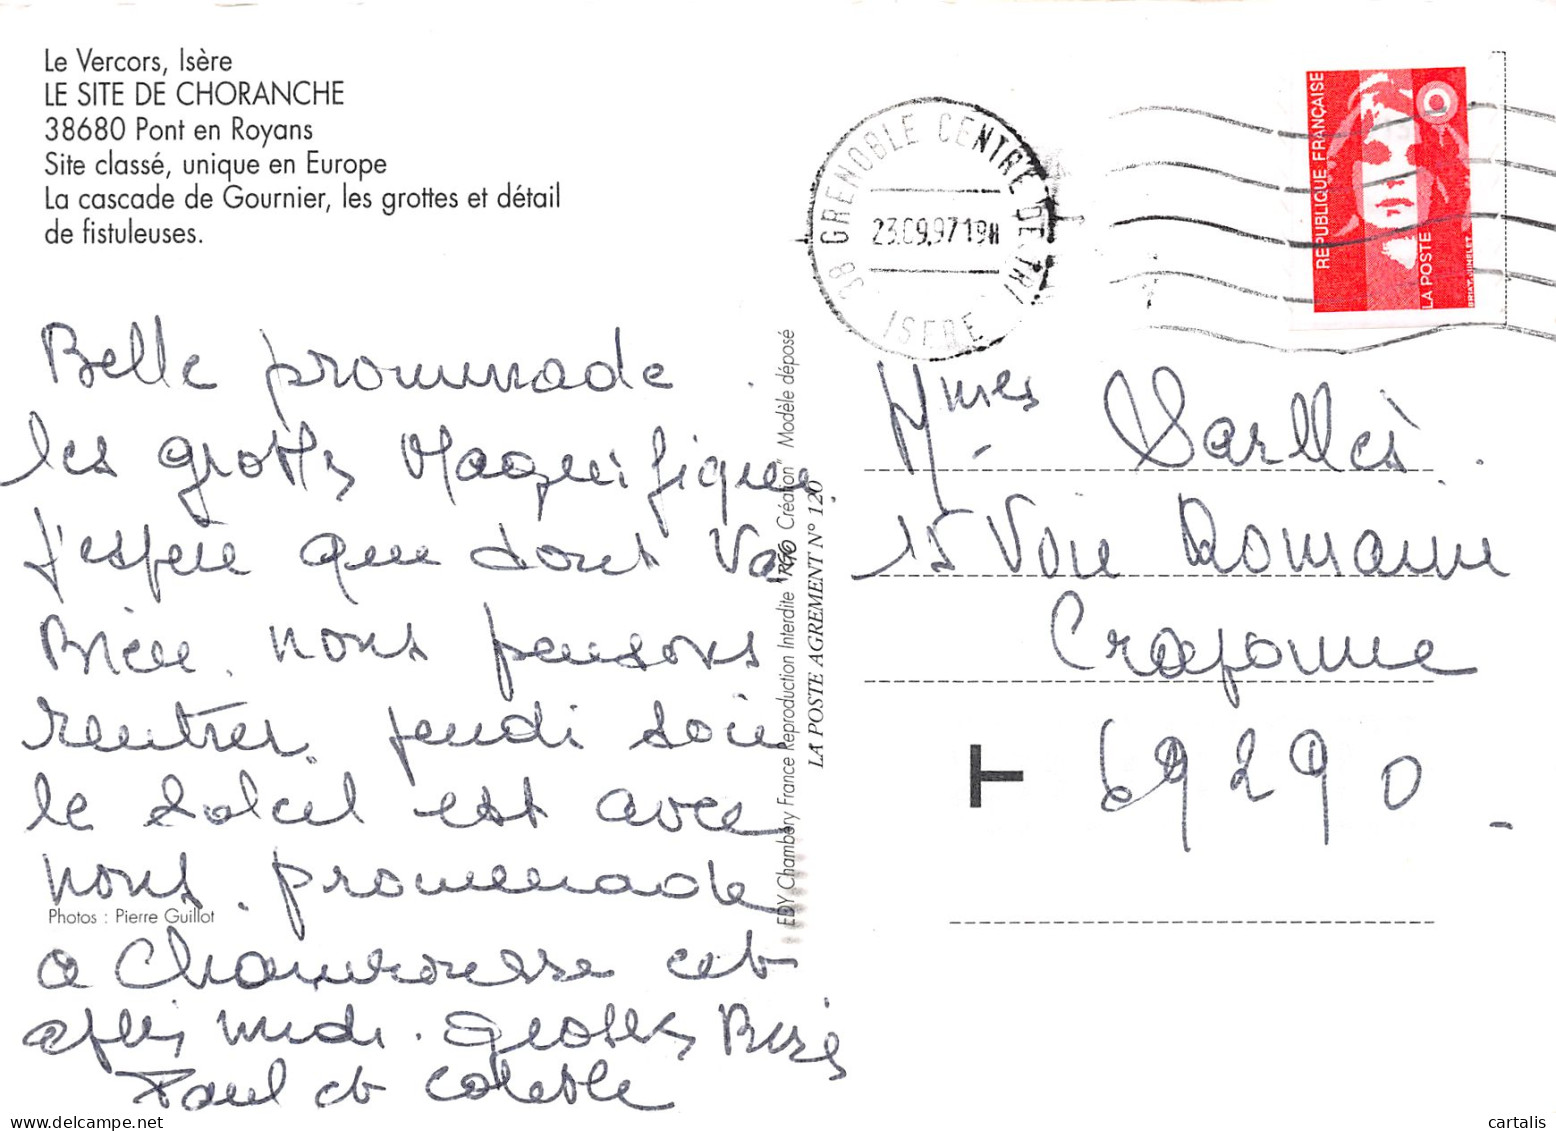 Le Vercors, Isère
LE SITE DE CHORANCHE
38680 Pont en Royans
Site classé, unique en Europe
La cascade de Gournier, les grottes et détail
de fistuleuses.
38 GRENOBLE CENTRE DE TRI
23.09.97 19H
ISERE
REPUBLIQUE FRANÇAISE
LA POSTE
BRIAT-JUMELET
Belle promenade
les grottes Magnifiques
j'espère que dont va
Bien. nous pensons
rentrer jeudi soir
le soleil est avec
nous. promenade
a Chamrousse cet
après midi. Grosses Bises
Paul et Colette
Photos : Pierre Guillot
EDY Chambéry France Reproduction Interdite "REGO Création" Modèle déposé
LA POSTE AGREMENT N° 120
Mmes
15 Voie Romaine
Craponne
T 69290
cartalis